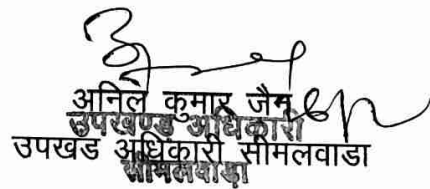 अनिल कुमार जैन
उपखण्ड अधिकारी
उपखड अधिकारी सीमलवाडा
सीमलवाडा